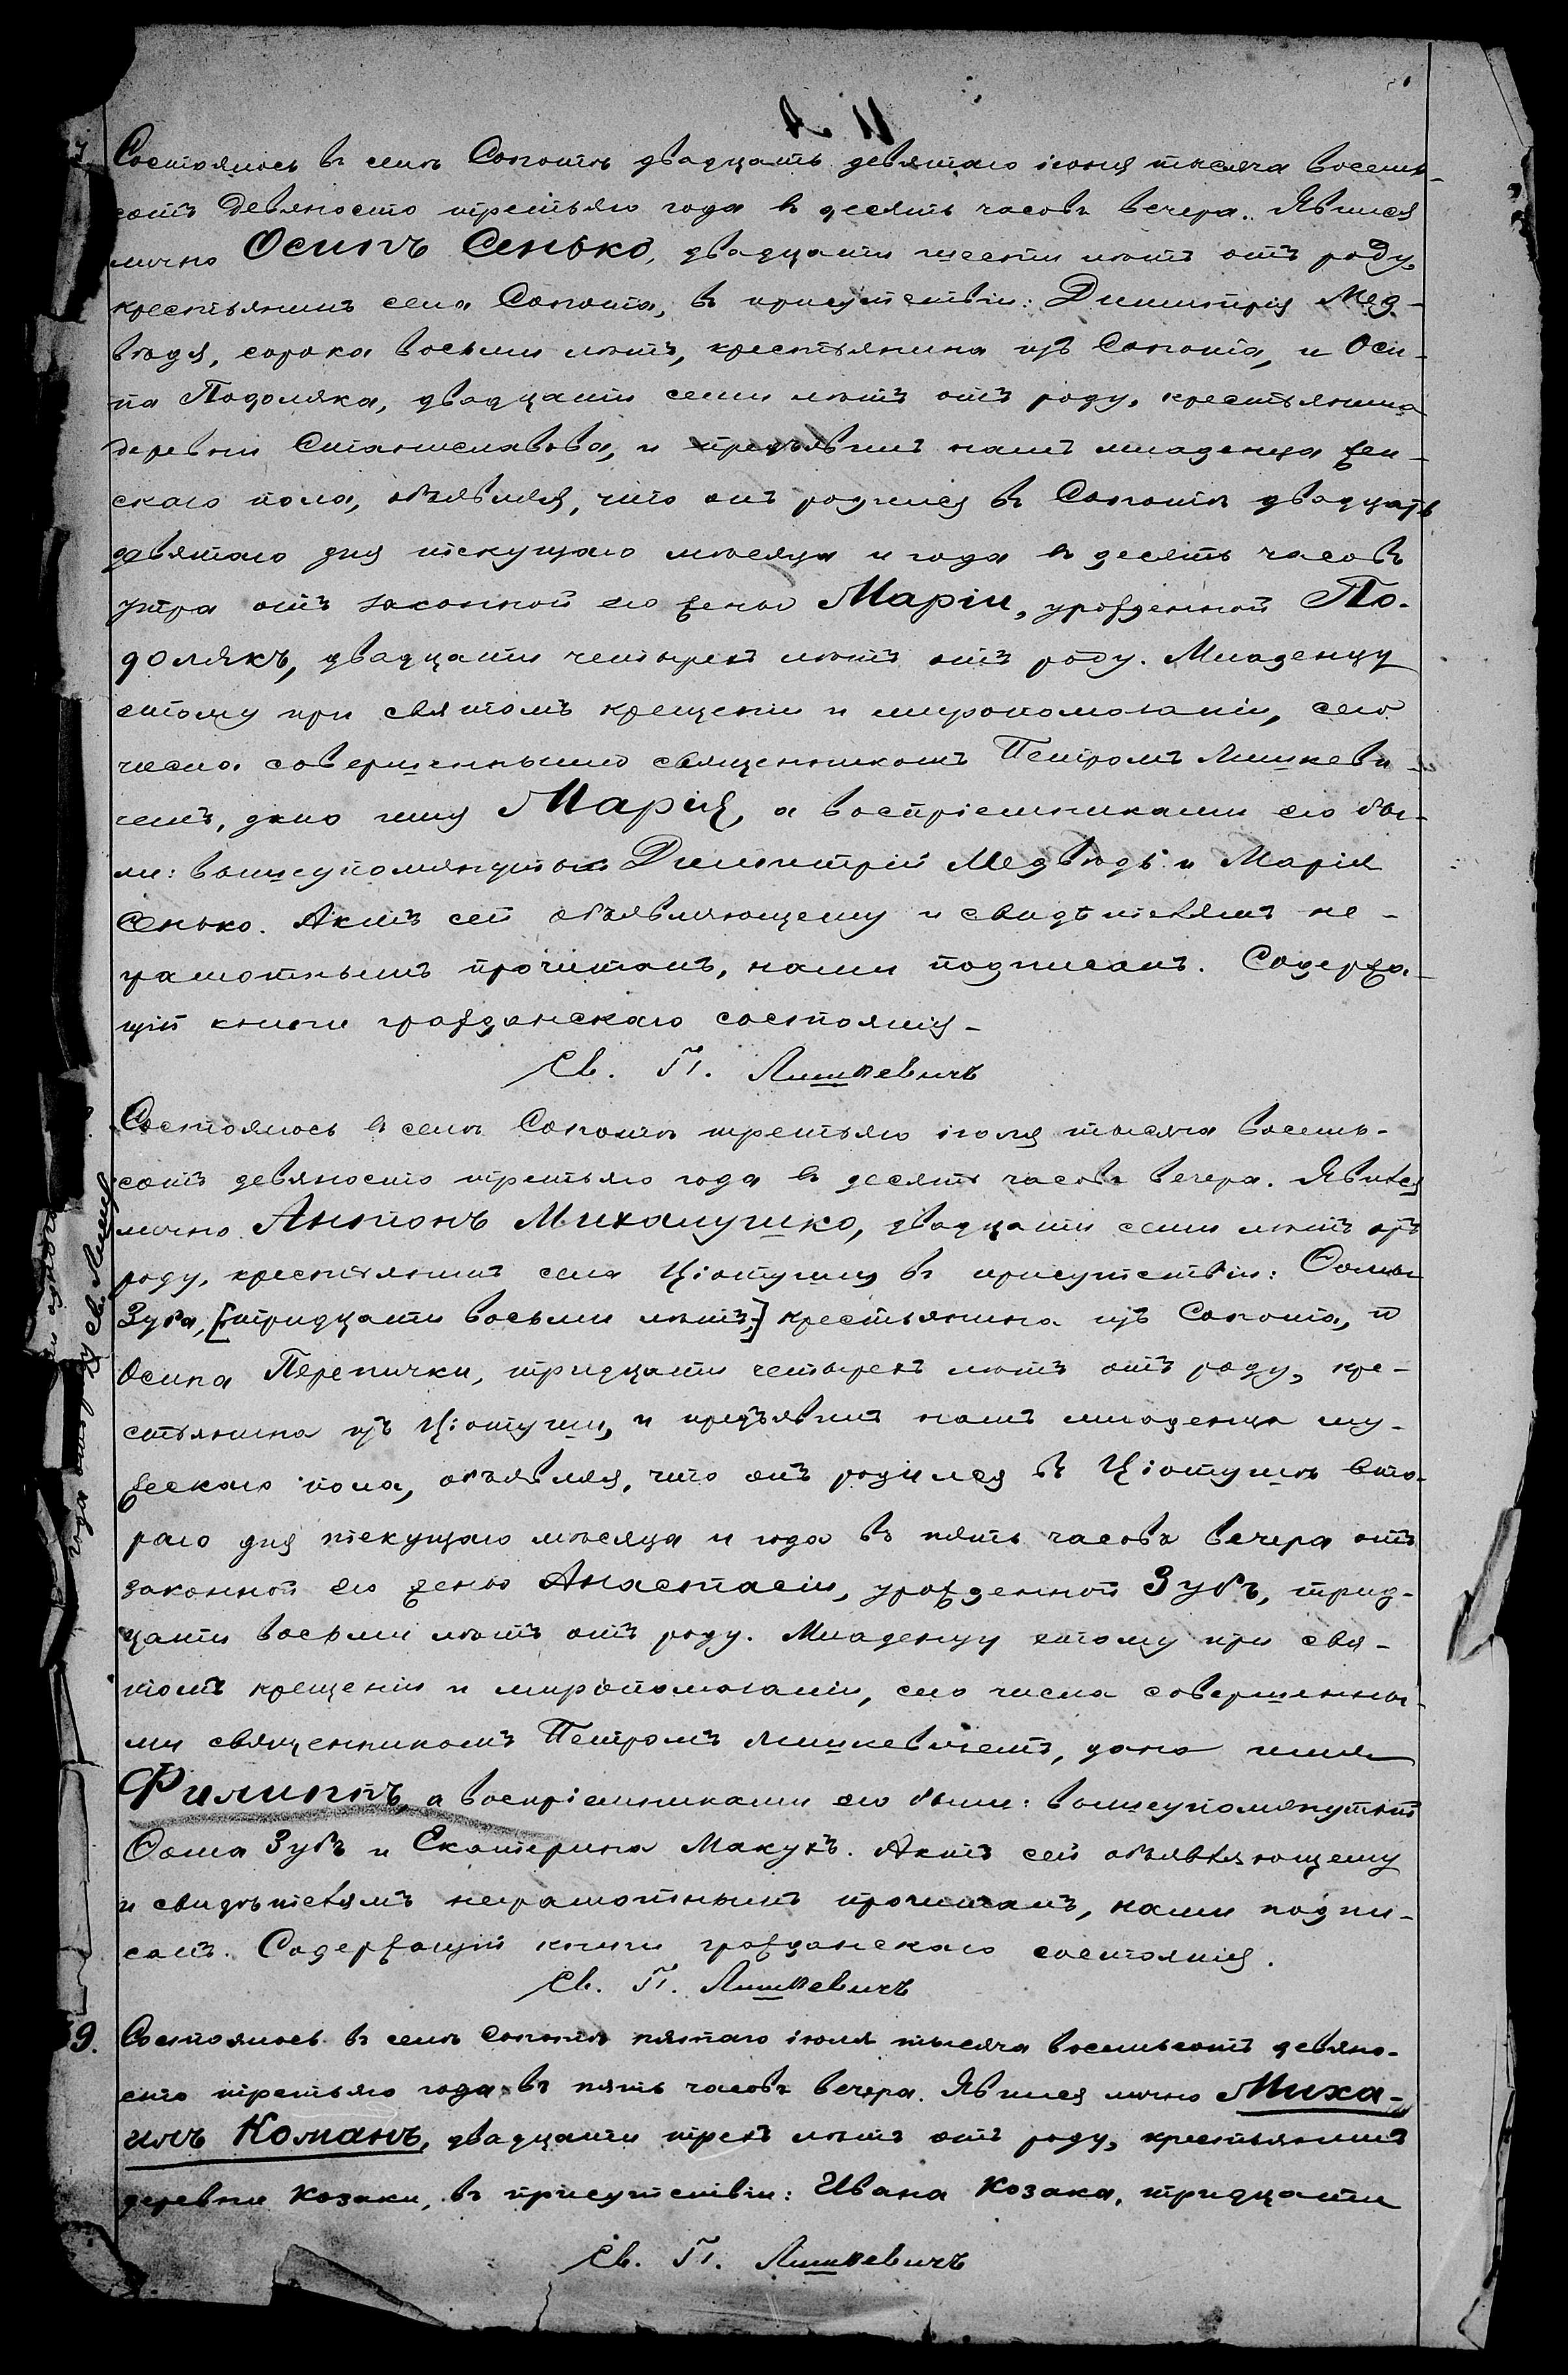 Состоялось въ селѣ Сопотѣ двадцать девятаго іюня тысяча восемь-
сотъ девяносто третьяго года въ десять часовъ вечера. Явился
лично Осипъ Сенько, двадцати шести лѣтъ отъ роду,
крестьянинъ села Сопота, въ присутствіи: Димитрія Мед-
вѣдя, сорока восьми лѣтъ, крестьянина изъ Сопота, и Оси-
па Подоляка, двадцати семи лѣтъ отъ роду, крестьянина
деревни Станиславова, и предъявилъ намъ младенца жен-
скаго пола, объявляя, что онъ родился въ Сопотѣ двадцать
девятаго дня текущаго мѣсяца и года въ десять часовъ
утра отъ законной его жены Маріи, урожденной По-
долякъ, двадцати четырехъ лѣтъ отъ роду. Младенцу
этому при святомъ крещеніи и миропомазаніи, сего
числа совершенными священникомъ Петромъ Лишкеви-
чемъ, дано имя Марія, а воспріемниками его бы-
ли: вышеупомянутый Димитрій Медвѣдь и Марія
Сенько. Актъ сей объявляющему и свидѣтелямъ не-
грамотнымъ прочитанъ, нами подписанъ. Содержа-
щій книги гражданскаго состоянія -
Св. П. Лишкевичъ
Состоялось въ селѣ Сопотѣ третьяго іюля тысяча восемь-
сотъ девяносто третьяго года въ десять часовъ вечера. Явился
лично Антонъ Михалушко, двадцати семи лѣтъ отъ
роду, крестьянинъ села Ціотуши, въ присутствіи: Ѳомы
Зуба, [тридцати восьми лѣтъ,] крестьянина изъ Сопота, и
Осипа Перепички, тридцати четырехъ лѣтъ отъ роду, кре-
стьянина изъ Ціотуши, и предъявилъ намъ младенца му-
жескаго пола, объявляя, что онъ родился въ Ціотушѣ вто-
раго дня текущаго мѣсяца и года въ пять часовъ вечера отъ
законной его жены Анастасіи, урожденной Зубъ, трид-
цати восьми лѣтъ отъ роду. Младенцу этому при свя-
томъ крещеніи и миропомазаніи, сего числа совершенны-
ми священникомъ Петромъ Лишкевичемъ, дано имя
Филиппъ, а воспріемниками его были: вышеупомянутый
Ѳома Зубъ и Екатерина Макухъ. Актъ сей объявляющему
и свидѣтелямъ неграмотнымъ прочитанъ, нами подпи-
санъ. Содержащій книги гражданскаго состоянія.
Св. П. Лишкевичъ
9. Состоялось въ селѣ Сопотѣ пятаго іюля тысяча восемьсотъ девяно-
сто третьяго года въ пять часовъ вечера. Явился лично Миха-
илъ Команъ, двадцати трехъ лѣтъ отъ роду, крестьянинъ
деревни Козаки, въ присутствіи: Ивана Козака, тридцати
Св. П. Лишкевичъ